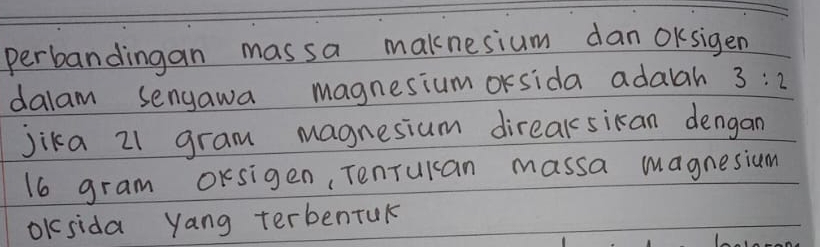 perbandingan massa maknesium dan oksigen
dalam senyawa magnesium oksida adalah 3 : 2
jika 21 gram magnesium direaksikan dengan
16 gram oksigen, Tentukan massa magnesium
oksida yang terbentuk